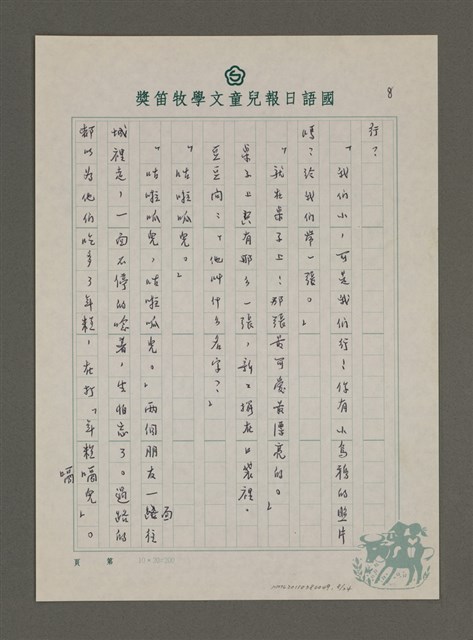 國語日報兒童文學牧笛獎
8
行？
「我们小，可是我们行！你有小烏鴉的照片
嗎？給我们带一張。」
「就在桌子上！那張最可愛最漂亮的。」
桌子上只有那么一張，新二捐在口袋裡。
豆豆问：「他叫什么名字？」
「咕啦呱兒。」
「咕啦呱兒，咕啦呱兒。」兩個朋友一路往
城裡走，一面不停的唸著，生怕忘了。過路的
都以为他们吃多了年糕，在打「年糕嗝兒」。
面
嗝
第 頁